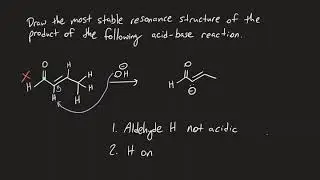 Draw the most stable resonance structure of the
product of the following acid-base reaction.
X O H H ⊖
OH O
H 3 H
H H H ⊖
1. Aldehyde H not acidic
2. H on